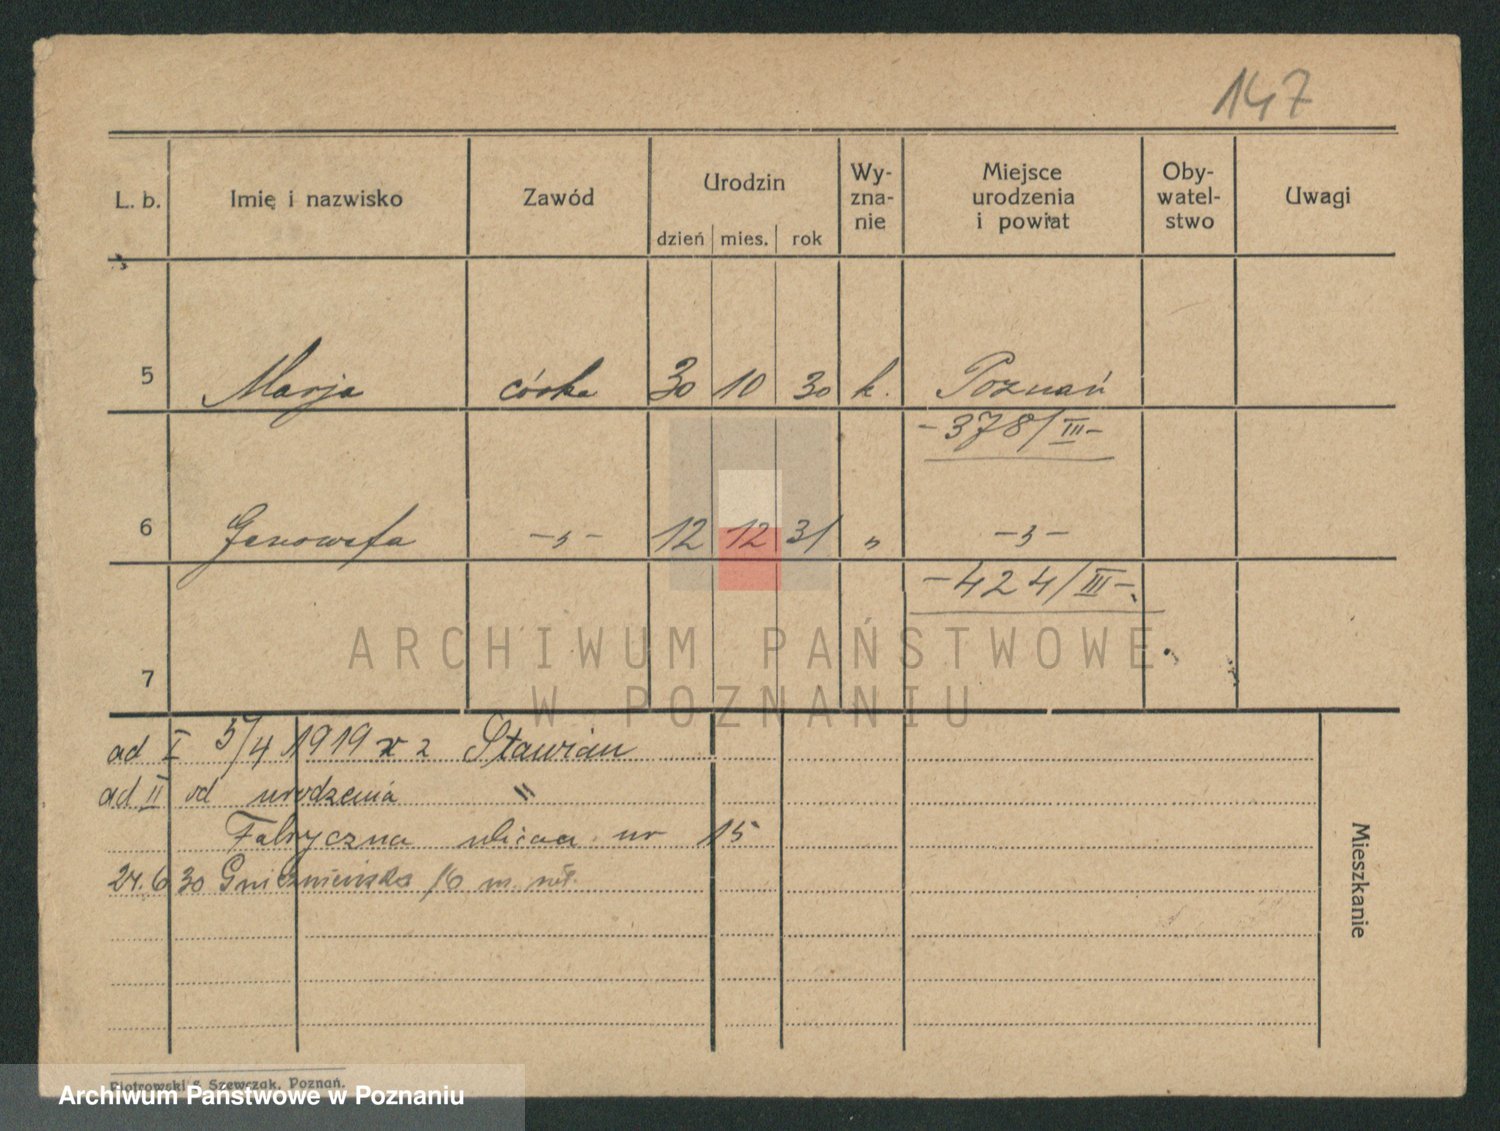 147
L. b. Imię i nazwisko Zawód Urodzin Wy-zna-nie Miejsce urodzenia i powiat Oby-watel-stwo Uwagi
dzień mies. rok
5 Marja córka 30 10 30 k. Poznań
-378/III-
6 Genowefa -„- 12 12 31 „ -„-
-424/III-
7
ARCHIWUM PAŃSTWOWE
W POZNANIU
ad I 5/4 1919 z
ad II od urodzenia "
Fabryczna ulica nr 15
24.6 30 Gnieźnieńska 16 m.
Mieszkanie
Piotrowski & Szewczak, Poznań.
Archiwum Państwowe w Poznaniu